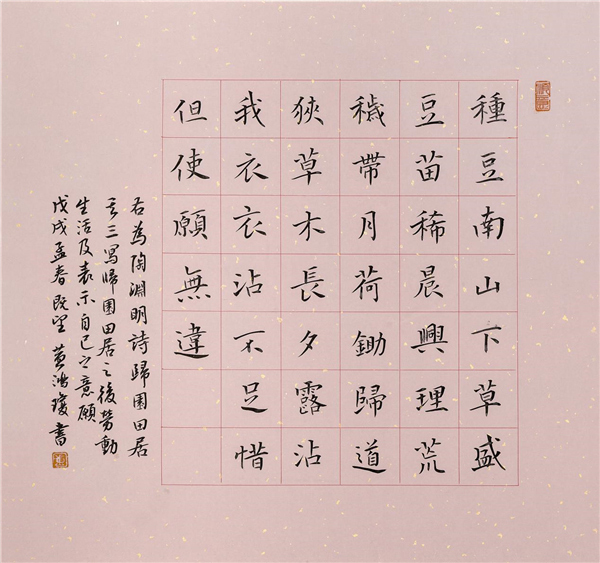 種豆南山下草盛
豆苗稀晨興理荒
穢帶月荷鋤歸道
狹草木長夕露沾
我衣衣沾不足惜
但使願無違
右為陶淵明詩歸園田居
其三寫歸園田居之後勞動
生活及表示自己之意願
戊戌孟春既望 黃鴻瓊書